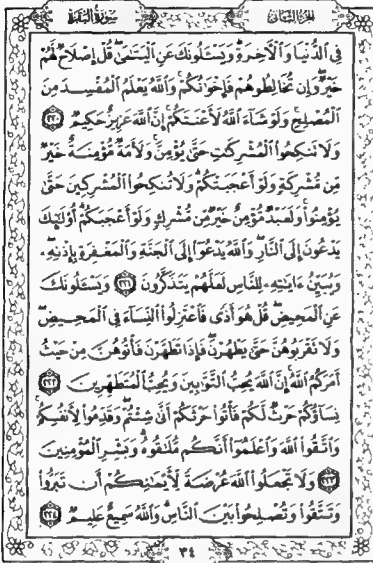 الجزء الثاني
سورة البقرة
فِي ٱلدُّنْيَا وَٱلْآخِرَةِ وَيَسْـَٔلُونَكَ عَنِ ٱلْيَتَٰمَىٰ قُلْ إِصْلَاحٌ لَّهُمْ
خَيْرٌ وَإِن تُخَالِطُوهُمْ فَإِخْوَٰنُكُمْ وَٱللَّهُ يَعْلَمُ ٱلْمُفْسِدَ مِنَ
ٱلْمُصْلِحِ وَلَوْ شَآءَ ٱللَّهُ لَأَعْنَتَكُمْ إِنَّ ٱللَّهَ عَزِيزٌ حَكِيمٌ ٢٢٠
وَلَا تَنكِحُوا۟ ٱلْمُشْرِكَٰتِ حَتَّىٰ يُؤْمِنَّ وَلَأَمَةٌ مُّؤْمِنَةٌ خَيْرٌ
مِّن مُّشْرِكَةٍ وَلَوْ أَعْجَبَتْكُمْ وَلَا تُنكِحُوا۟ ٱلْمُشْرِكِينَ حَتَّىٰ
يُؤْمِنُوا۟ وَلَعَبْدٌ مُّؤْمِنٌ خَيْرٌ مِّن مُّشْرِكٍ وَلَوْ أَعْجَبَكُمْ أُو۟لَٰٓئِكَ
يَدْعُونَ إِلَى ٱلنَّارِ وَٱللَّهُ يَدْعُوٓا۟ إِلَى ٱلْجَنَّةِ وَٱلْمَغْفِرَةِ بِإِذْنِهِۦ
وَيُبَيِّنُ ءَايَٰتِهِۦ لِلنَّاسِ لَعَلَّهُمْ يَتَذَكَّرُونَ ٢٢١ وَيَسْـَٔلُونَكَ
عَنِ ٱلْمَحِيضِ قُلْ هُوَ أَذًى فَٱعْتَزِلُوا۟ ٱلنِّسَآءَ فِي ٱلْمَحِيضِ
وَلَا تَقْرَبُوهُنَّ حَتَّىٰ يَطْهُرْنَ فَإِذَا تَطَهَّرْنَ فَأْتُوهُنَّ مِنْ حَيْثُ
أَمَرَكُمُ ٱللَّهُ إِنَّ ٱللَّهَ يُحِبُّ ٱلتَّوَّٰبِينَ وَيُحِبُّ ٱلْمُتَطَهِّرِينَ ٢٢٢
نِسَآؤُكُمْ حَرْثٌ لَّكُمْ فَأْتُوا۟ حَرْثَكُمْ أَنَّىٰ شِئْتُمْ وَقَدِّمُوا۟ لِأَنفُسِكُمْ
وَٱتَّقُوا۟ ٱللَّهَ وَٱعْلَمُوٓا۟ أَنَّكُم مُّلَٰقُوهُ وَبَشِّرِ ٱلْمُؤْمِنِينَ
٢٢٣ وَلَا تَجْعَلُوا۟ ٱللَّهَ عُرْضَةً لِّأَيْمَٰنِكُمْ أَن تَبَرُّوا۟
وَتَتَّقُوا۟ وَتُصْلِحُوا۟ بَيْنَ ٱلنَّاسِ وَٱللَّهُ سَمِيعٌ عَلِيمٌ ٢٢٤
٣٤